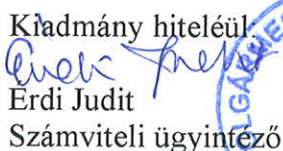 Kiadmány hiteléül:
Erdi Judit
Számviteli ügyintéző